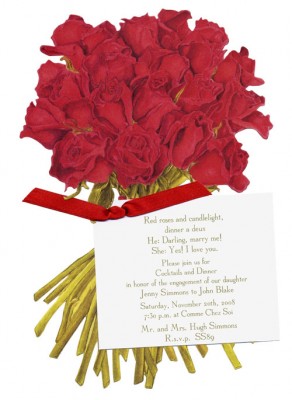 Red roses and candlelight,
dinner a deux
He: Darling, marry me!
She: Yes! I love you.
Please join us for
Cocktails and Dinner
in honor of the engagement of our daughter
Jenny Simmons to John Blake
Saturday, November 20th, 2008
7:30 p.m. at Comme Chez Soi
Mr. and Mrs. Hugh Simmons
R.s.v.p. SS89